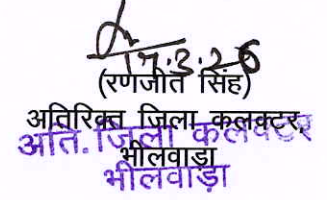 17.3.26
(रणजीत सिंह)
अतिरिक्त जिला कलक्टर,
अति. जिला कलक्टर
भीलवाड़ा
भीलवाड़ा